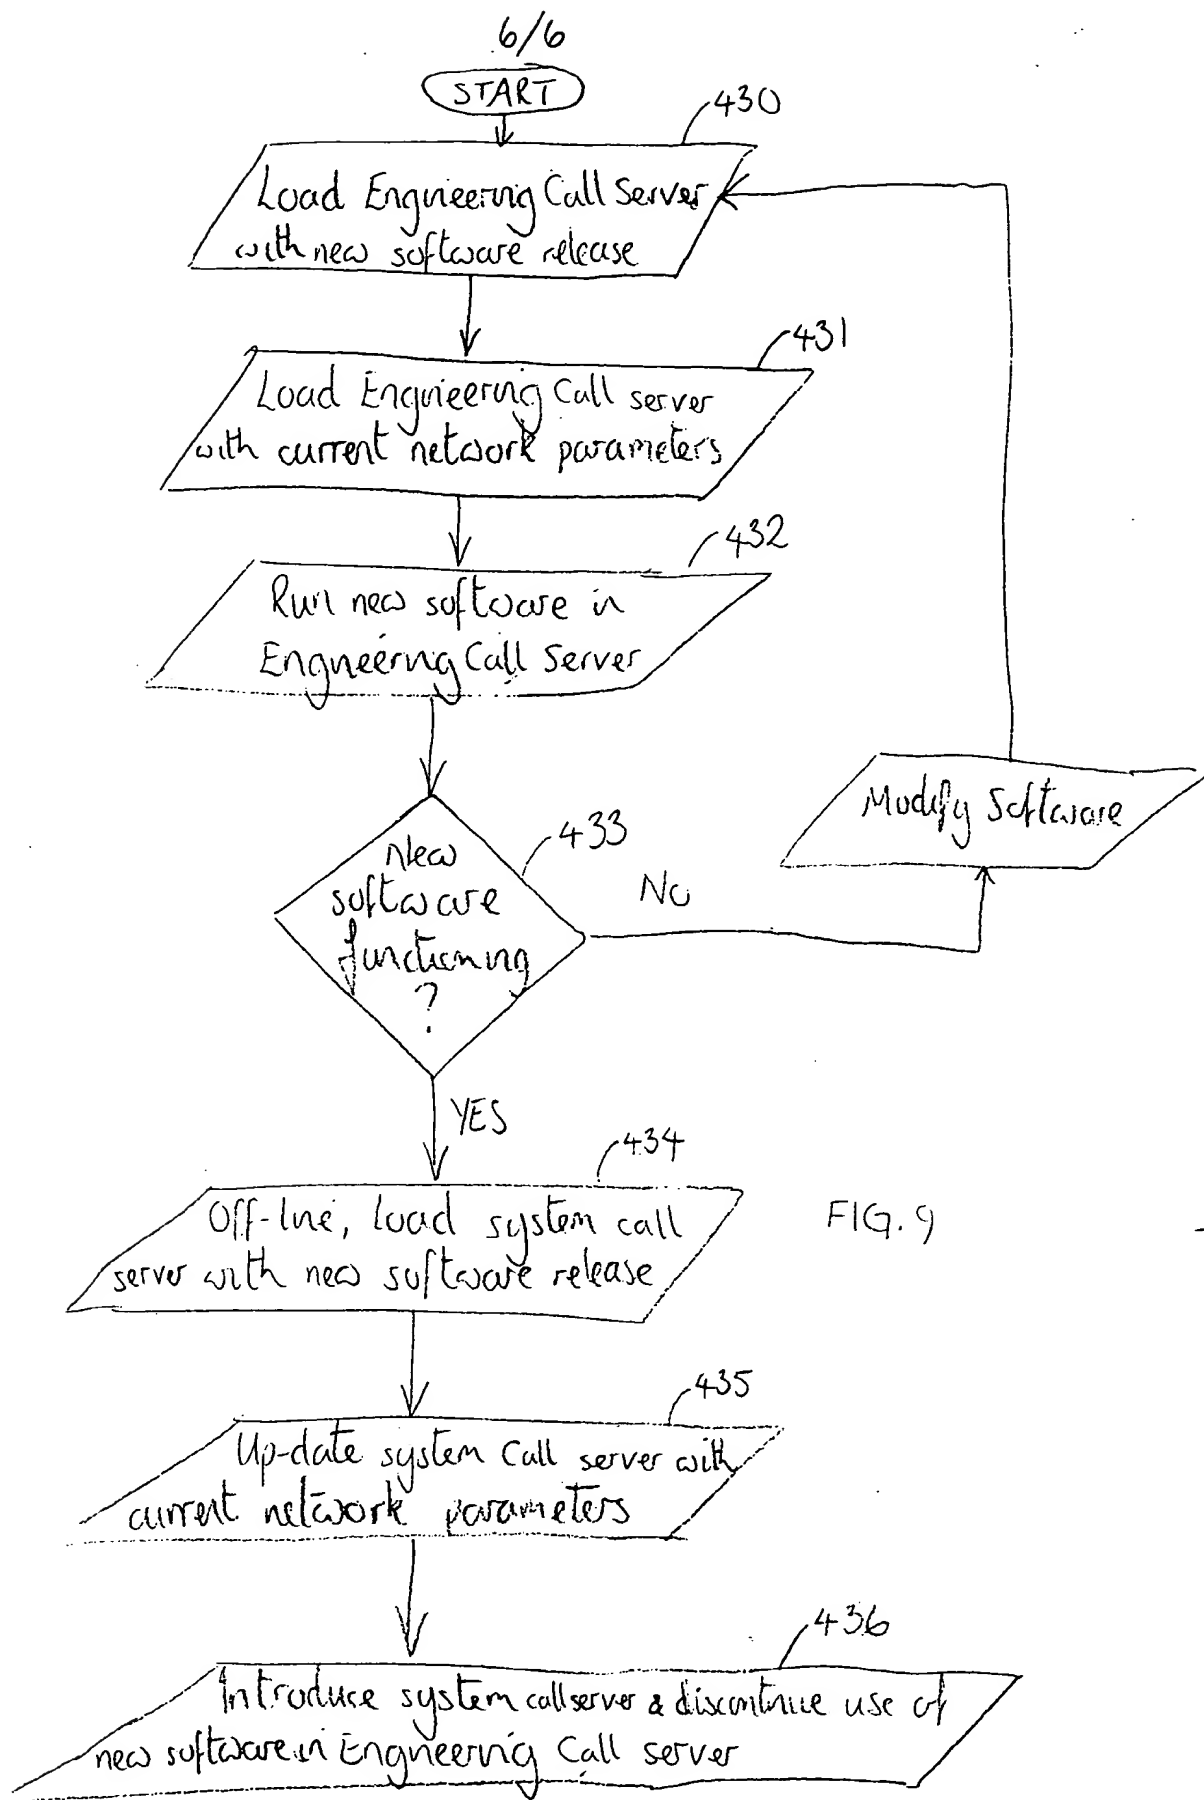 6/6
START
430
Load Engineering Call Server
with new software release
431
Load Engineering Call server
with current network parameters
432
Run new software in
Engineering Call Server
433
New
software
functioning
?
NO
Modify Software
YES
434
Off-line, load system call
server with new software release
FIG. 9
435
Up-date system Call server with
current network parameters
436
Introduce system callserver & discontinue use of
new software in Engineering Call server